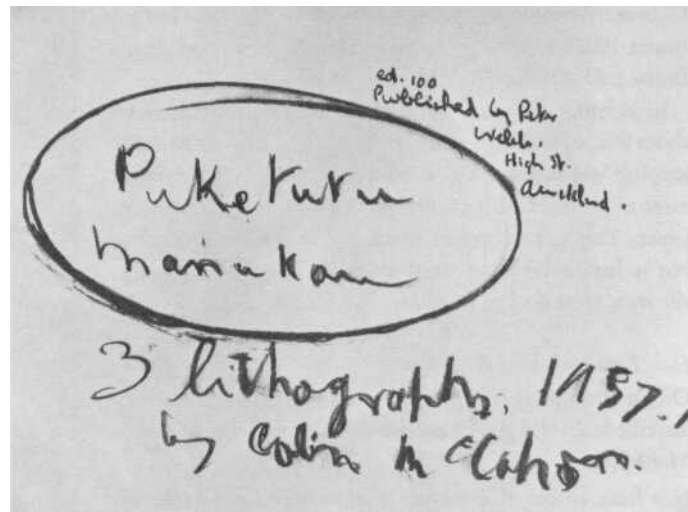 ed. 100
Published by Peter
Webb.
High St.
Auckland.
Puketutu
Manukau
3 lithographs, 1957,
by Colin McCahon.